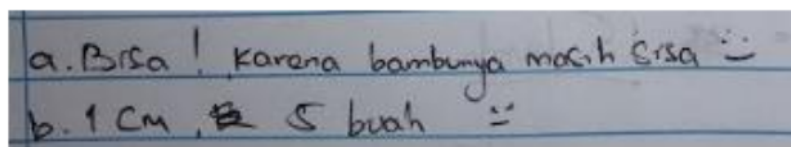 a. Bisa! Karena bambunya masih sisa
b. 1 cm, 5 buah